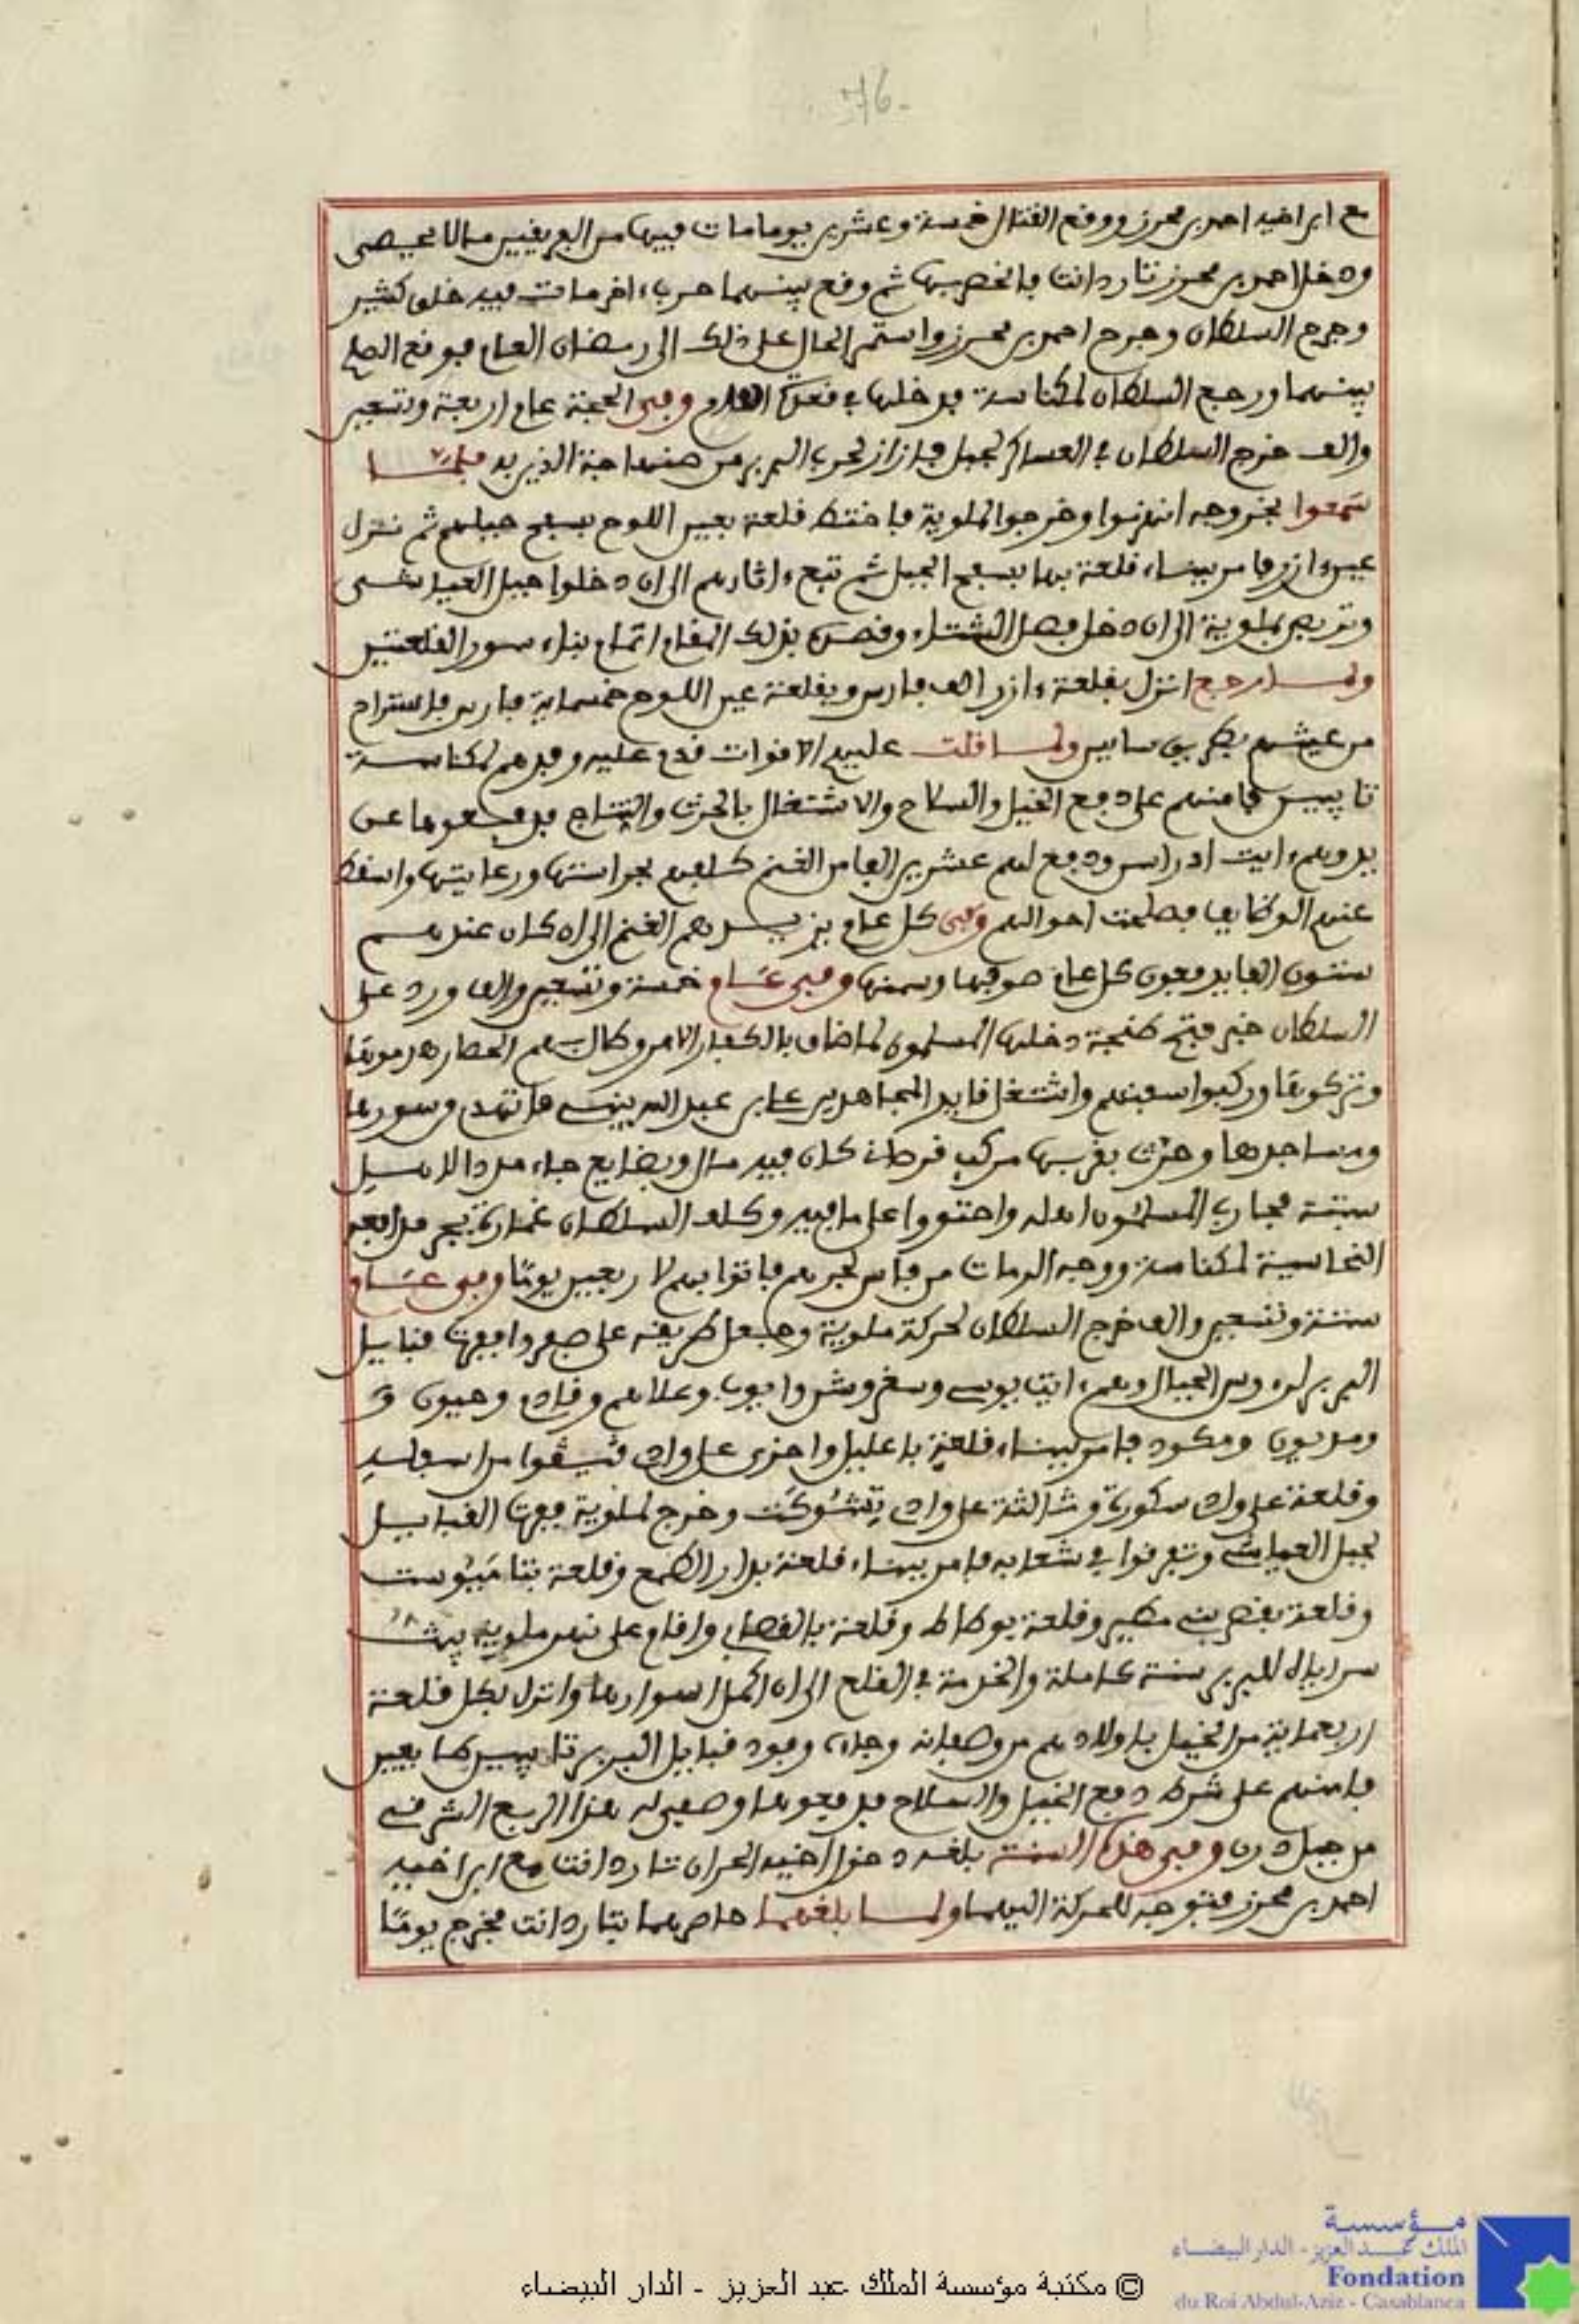 76
مع ابن اخيه احمد بن محرز ووقع القتال خمسة وعشرين يوما مات فيها من الفريقين ما لا يحيصى
ودخل احمد بن محرز تارودانت فانحصر بها ثم وقع بينهما حرب ءاخر مات فيه خلق كثير
وجرح السلطان وجرح احمد بن محرز واستمر الحال على ذلك الى رمضان العام فوقع الصلح
بينهما ورجع السلطان لمكناسة فدخلها في قعدة العام وفي الحجة عام اربعة وتسعين
والف خرج السلطان في العساكر لجبل فازاز لحرب البربر من صنهاجة الذين به فلما
سمعوا بخروجه انهزموا وخرجوا لملوية فاختط قلعة بعين اللوح بسفح جبلهم ثم نزل
عين ءازرو فامر ببناء قلعة بها بسفح الجبل ثم تبع ءاثارهم الى ان دخلوا جبل العياشي
وتربص بملوية الى ان دخل فصل الشتاء وقصده بذلك المقام اتمام بناء سور القلعتين
ولما رجع انزل بقلعة ءازرو الف فارس وبقلعة عين اللوح خمسماية فارس فاستراح
من عيشهم بطريق سايس ولما قلت عليهم الاقوات قدم عليه وفدهم لمكناسة
تايبين فامنهم على دفع الخيل والسلاح والاشتغال بالحرث والنتاج فدفعوها عن
يد وهم ايت ادراسن ودفع لهم عشرين الفا من الغنم كلفهم بحراستها ورعايتها واسقط
عنهم الوظايف فصلحت احوالهم وفي كل عام يزيدهم الغنم الى ان كان عندهم
ستون الفا يدفعون كل عام صوفها وسمنها وفي عام خمسة وتسعين والف ورد على
السلطان خبر فتح طنجة دخلها المسلمون لما ضاق بالكفار الامر وطال بهم الحصار هدموها
وتركوها وركبوا سفنهم واشتغل قايد المجاهدين علي بن عبد الله ببناء ما تهدم من سورها
ومساجدها وحرث بقربها مركب قرطان كان فيه مال وبضايع جاء مددا لاهل
سبتة فحارب المسلمون اهله واحتووا على ما فيه وكلف السلطان غمارة بجر مدافعه
النحاسية لمكناسة ووجه الرمات من فاس لجرهم فاتوا بهم لاربعين يوما وفي عام
ستة وتسعين والف خرج السلطان لحركة ملوية وجعل طريقه على صفرو ففرت قبايل
البربر لرءوس الجبال وهم ايت يوسي وسغروشن وايوب وعلاهم وقادم وحيون و
ومديون ومكود فامر ببناء قلعة باعليل واخرى على واد
وقلعة على واد سكورة وثالثة على واد تشوكت وخرج لملوية ففرت القبايل
لجبل العياشي وتفرقوا في شعابه فامر ببناء قلعة بدار الطمع وقلعة بتامبوست
وقلعة بقصر بني مطير وقلعة بوطاط وقلعة بالقصابي واقام على نهر ملوية يبث
سراياه للبربر سنة كاملة والخدمة في القلع الى ان اكمل اسوارها وانزل بكل قلعة
اربعماية من الخيل باولادهم من وصفانه وجاءه وفود قبايل البربر تايبين طايعين
فامنهم على شرط دفع الخيل والسلاح فدفعوها وصفى له هذا الربع الشرقي
من جبل درن وفي هذه السنة بلغه دخول اخيه الحران تارودانت مع ابن اخيه
احمد بن محرز فتوجه للحركة اليهما ولما بلغهما حاصرهما بتارودانت فخرج يوما
© مكتبة مؤسسة الملك عبد العزيز - الدار البيضاء
مؤسسة
الملك عبد العزيز - الدار البيضاء
Fondation
du Roi Abdul-Aziz - Casablanca